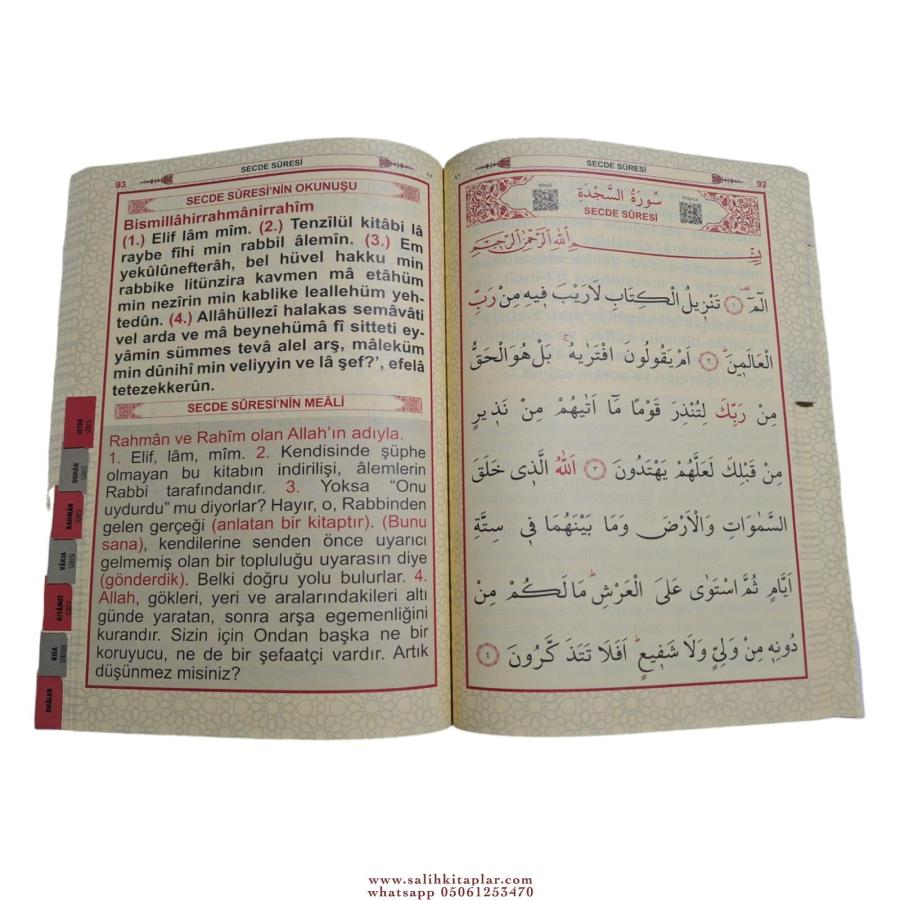 SECDE SÛRESİ
92
Meali
سُورَةُ السَّجْدَةِ
SECDE SÛRESİ
Arapça
بِسْمِ اللّٰهِ الرَّحْمٰنِ الرَّحِيمِ
الٓمٓ ﴿١﴾ تَنْزِيلُ الْكِتَابِ لَا رَيْبَ فِيهِ مِنْ رَبِّ
الْعَالَمِينَۜ ﴿٢﴾ اَمْ يَقُولُونَ افْتَرٰيهُۚ بَلْ هُوَ الْحَقُّ
مِنْ رَبِّكَ لِتُنْذِرَ قَوْمًا مَٓا اَتٰيهُمْ مِنْ نَذِيرٍ
مِنْ قَبْلِكَ لَعَلَّهُمْ يَهْتَدُونَ ﴿٣﴾ اَللّٰهُ الَّذِي خَلَقَ
السَّمٰوَاتِ وَالْاَرْضَ وَمَا بَيْنَهُمَا فِي سِتَّةِ
اَيَّامٍ ثُمَّ اسْتَوٰى عَلَى الْعَرْشِۜ مَا لَكُمْ مِنْ
دُونِهِ مِنْ وَلِيٍّ وَلَا شَفِيعٍۜ اَفَلَا تَتَذَكَّرُونَ ﴿٤﴾
93
SECDE SÛRESİ
SECDE SÛRESİ'NİN OKUNUŞU
Bismillâhirrahmânirrahîm
(1.) Elif lâm mîm. (2.) Tenzîlül kitâbi lâ
raybe fîhi min rabbil âlemîn. (3.) Em
yekûlûnefterâh, bel hüvel hakku min
rabbike litünzira kavmen mâ etâhüm
min nezîrin min kablike leallehüm yeh-
tedûn. (4.) Allâhüllezî halakas semâvâti
vel arda ve mâ beynehümâ fî sitteti ey-
yâmin sümmes tevâ alel arş, mâleküm
min dûnihî min veliyyin ve lâ şef?', efelâ
tetezekkerûn.
SECDE SÛRESİ'NİN MEÂLİ
Rahmân ve Rahîm olan Allah'ın adıyla.
1. Elif, lâm, mîm. 2. Kendisinde şüphe
olmayan bu kitabın indirilişi, âlemlerin
Rabbi tarafındandır. 3. Yoksa “Onu
uydurdu” mu diyorlar? Hayır, o, Rabbinden
gelen gerçeği (anlatan bir kitaptır). (Bunu
sana), kendilerine senden önce uyarıcı
gelmemiş olan bir topluluğu uyarasın diye
(gönderdik). Belki doğru yolu bulurlar. 4.
Allah, gökleri, yeri ve aralarındakileri altı
günde yaratan, sonra arşa egemenliğini
kurandır. Sizin için Ondan başka ne bir
koruyucu, ne de bir şefaatçi vardır. Artık
düşünmez misiniz?
SECDE SÛRESİ
DUHÂN SÛRESİ
RAHMÂN SÛRESİ
VÂKIA SÛRESİ
KIYÂMET SÛRESİ
KISA
DUÂLAR
www.salihkitaplar.com
whatsapp 05061253470